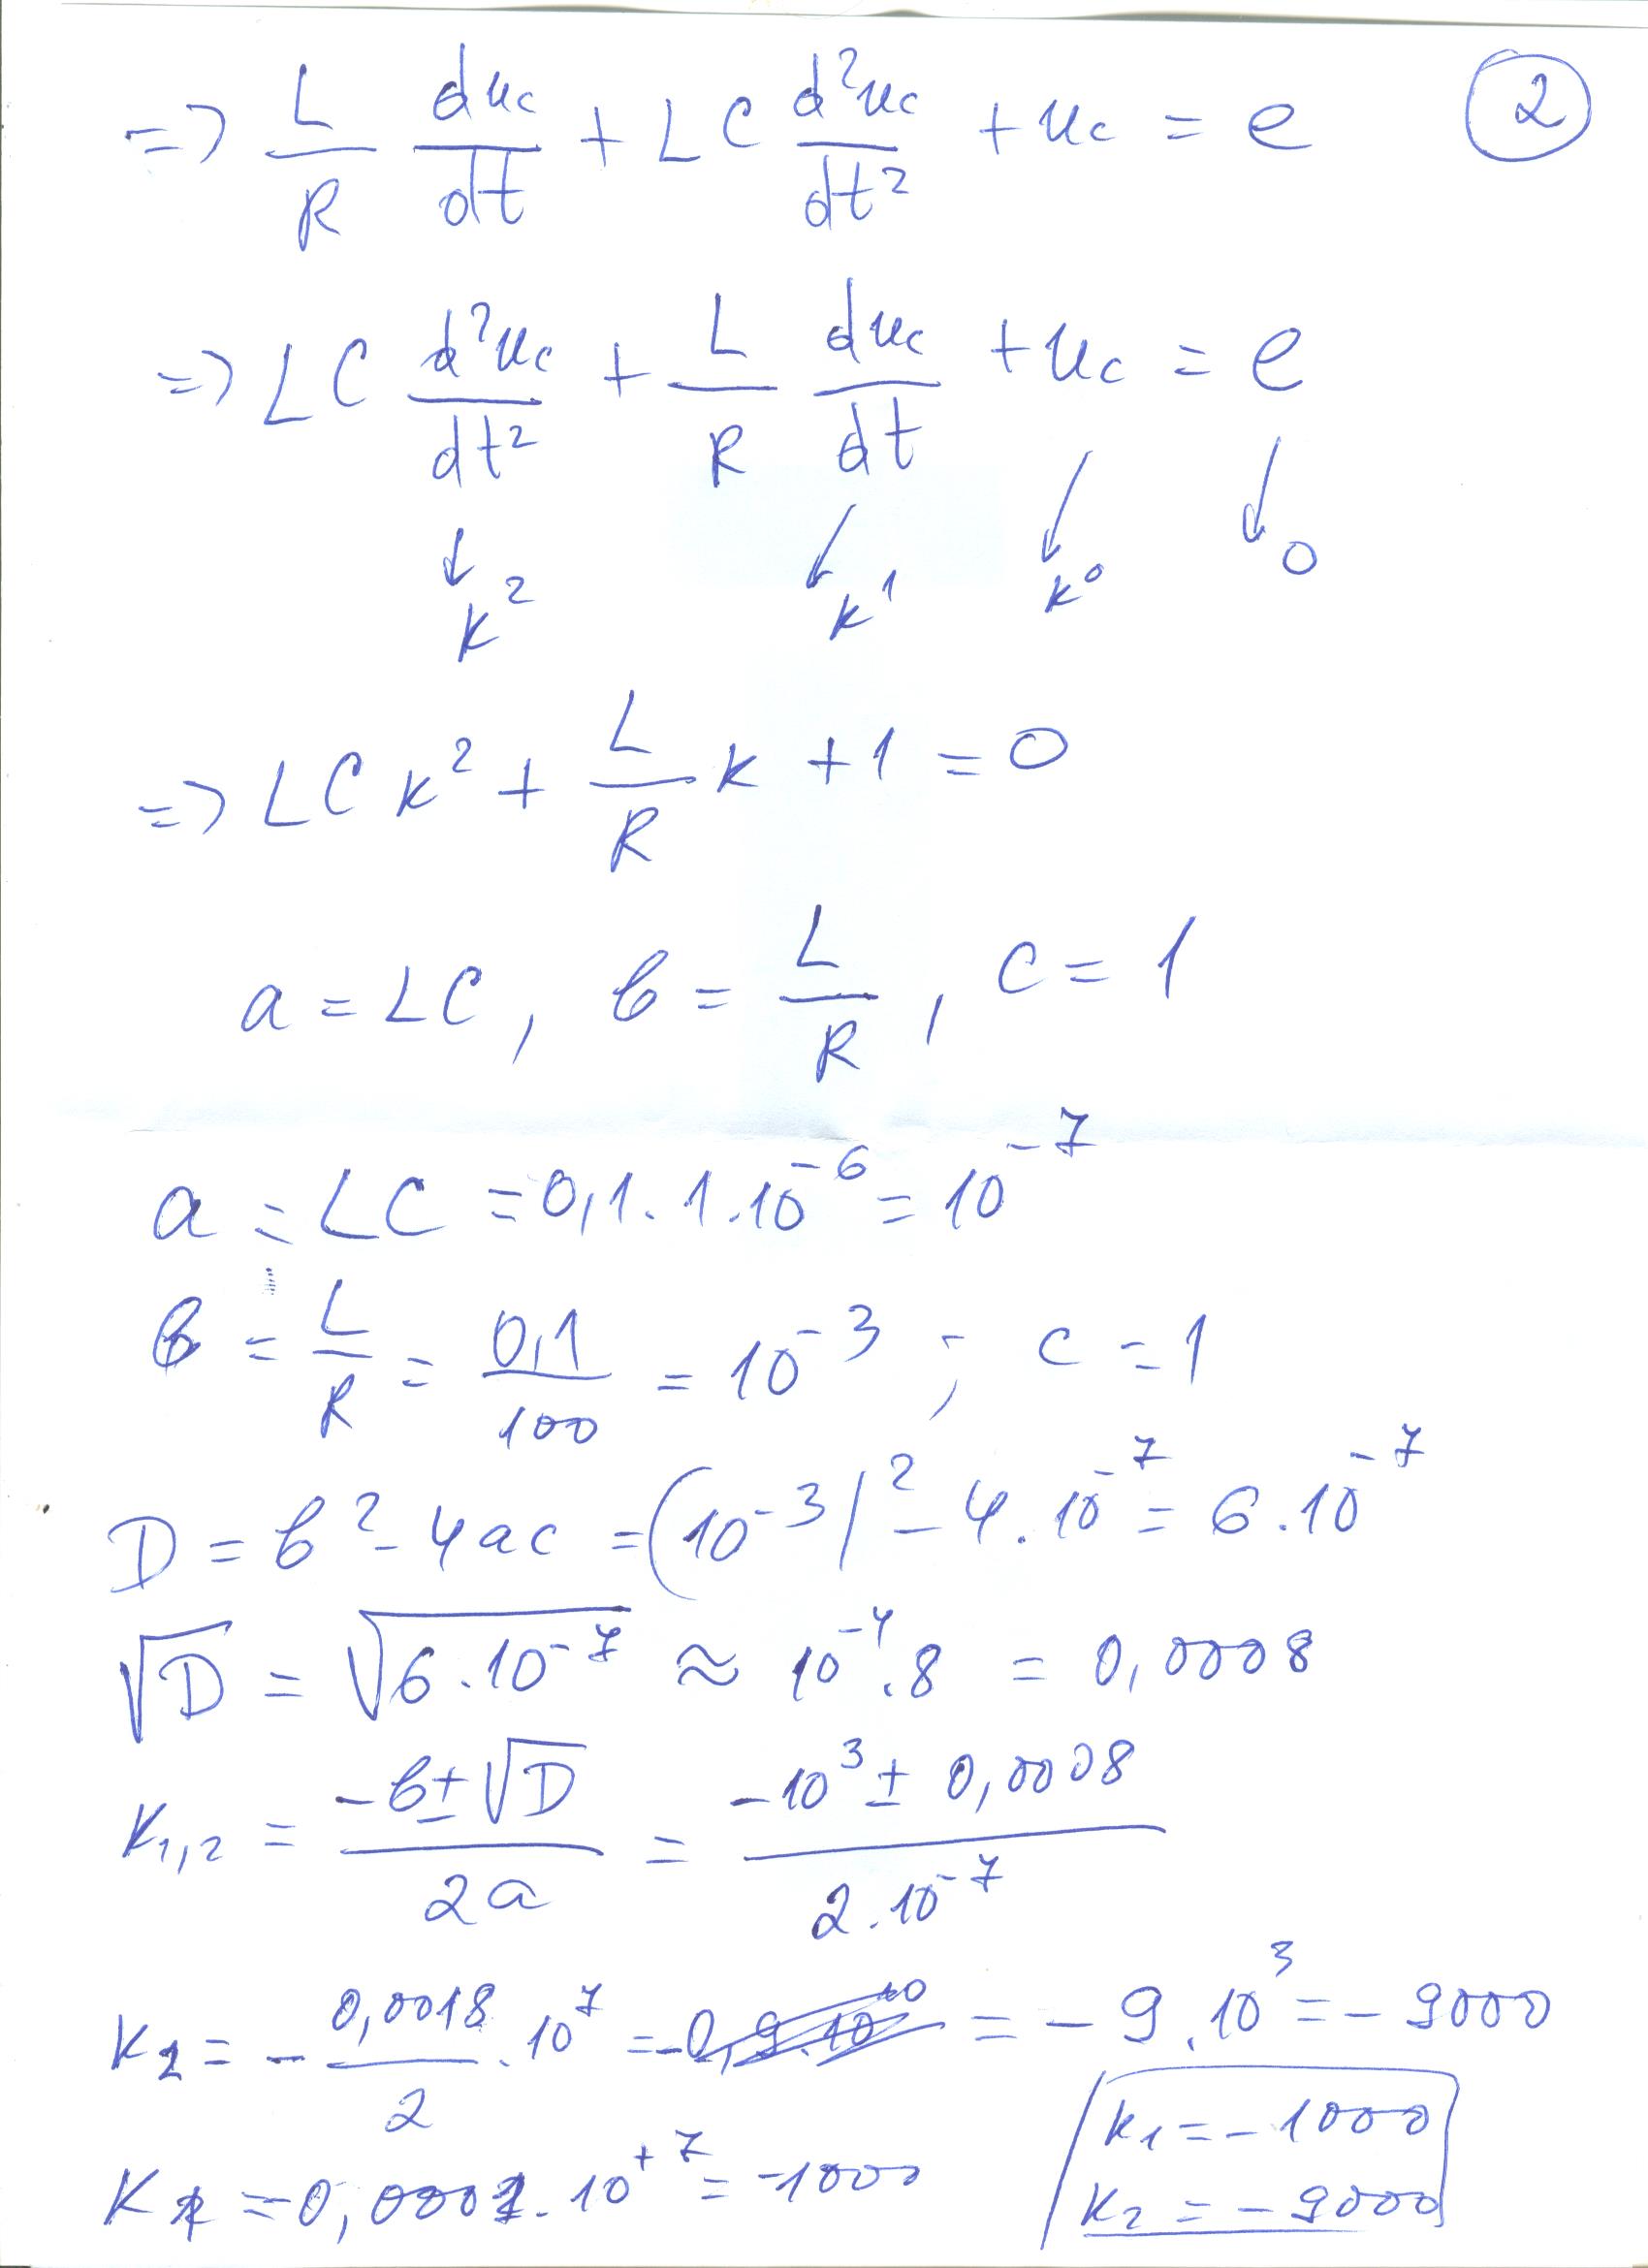 => L/R du_c/dt + LC d²u_c/dt² + u_c = e (2)
=> LC d²u_c/dt² + L/R du_c/dt + u_c = e
↓ k² ↓ k¹ ↓ k⁰ ↓ 0
=> LC k² + L/R k + 1 = 0
a = LC, b = L/R, c = 1
a = LC = 0,1 . 1 . 10⁻⁶ = 10⁻⁷
b = L/R = 0,1/100 = 10⁻³ ; c = 1
D = b² - 4ac = (10⁻³)² - 4 . 10⁻⁷ = 6 . 10⁻⁷
√D = √(6 . 10⁻⁷) ≈ 10⁻⁴ . 8 = 0,0008
k₁,₂ = (-b ± √D)/2a = (-10³ ± 0,0008)/(2 . 10⁻⁷)
k₂ = - 0,0018/2 . 10⁷ = = - 9 . 10³ = - 9000
k₁ = -0,0001 . 10⁺⁷ = -1000
k₁ = - 1000
k₂ = - 9000